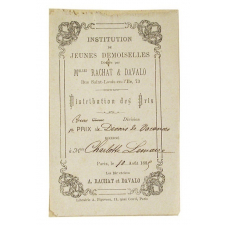 INSTITUTION
DE
JEUNES DEMOISELLES
DIRIGÉE PAR
Mmes RACHAT & DAVALO
Rue Saint-Louis-en-l'Ile,
Distribution des Prix
Division
PRIX de Devoirs de Vacances
à Mlle Charlotte Lemaire
Paris, le Août
A. RACHAT et DAVALO